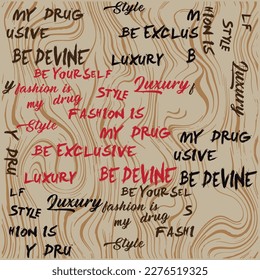 Style
MY DRUG
USIVE
BE DEVINE
BE EXCLUS
HION IS
MY
B
STYLE
LF
BE YOURSELF
fashion is
my drug
STYLE
Luxury
Luxury
Style
FASHION IS
MY DRUG
BE EXCLUSIVE
LUXURY
BE DEVINE
MY DRUG
USIVE
BE DEVINE
Y DRU
LF
STYLE
HION IS
Y DRU
Luxury
BE YOURSEL
fashion is
my drug
Style
S
FASHI
shutterstock.com · 2276519325